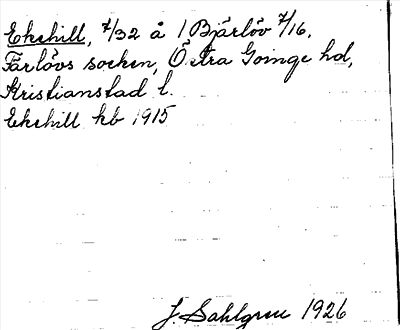 Ekehill, 7/32 å 1 Bjärlöv 7/16.
Färlövs socken, Östra Goinge hd,
Kristianstad l.
Ekehill kb 1915
J. Sahlgren 1926